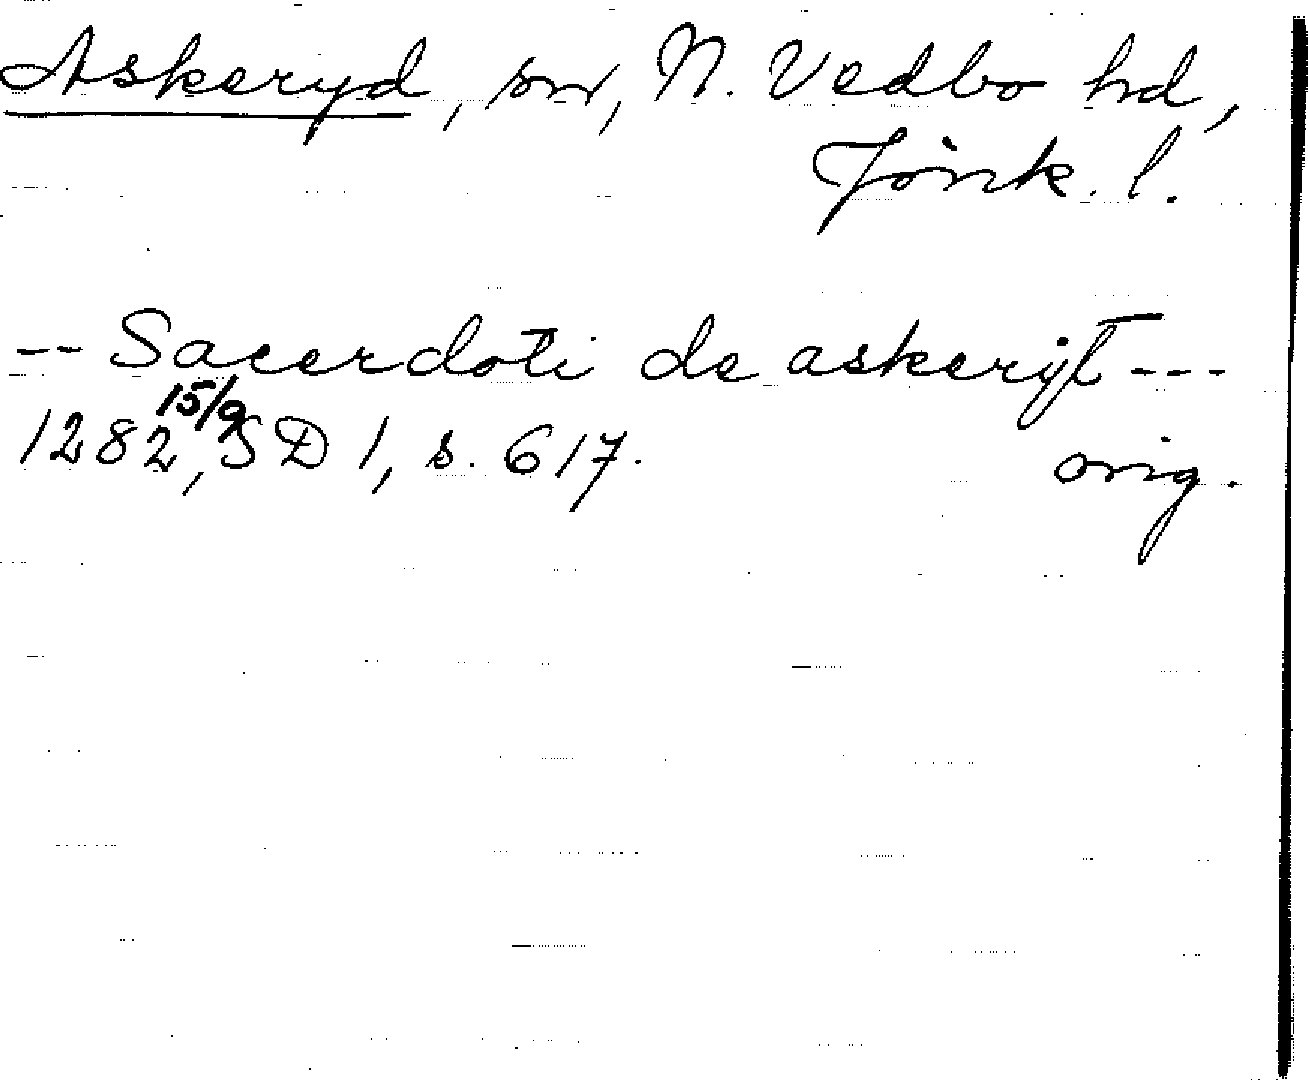 Askeryd, sn, N. Vedbo hd,
Jönk. l.
-- Sacerdoti de askeryt ---
1282 15/9, SD 1, s. 617. orig.